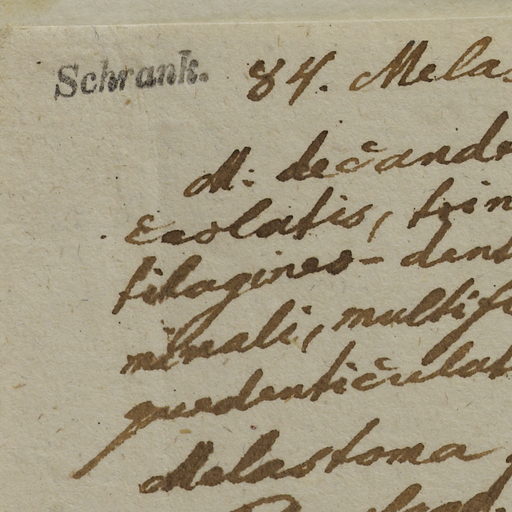 Schrank. 84. Melas
M: decandr
ceolatis, trin
tilagineo-dent
minali, multifi
quedenticulat
Melastoma